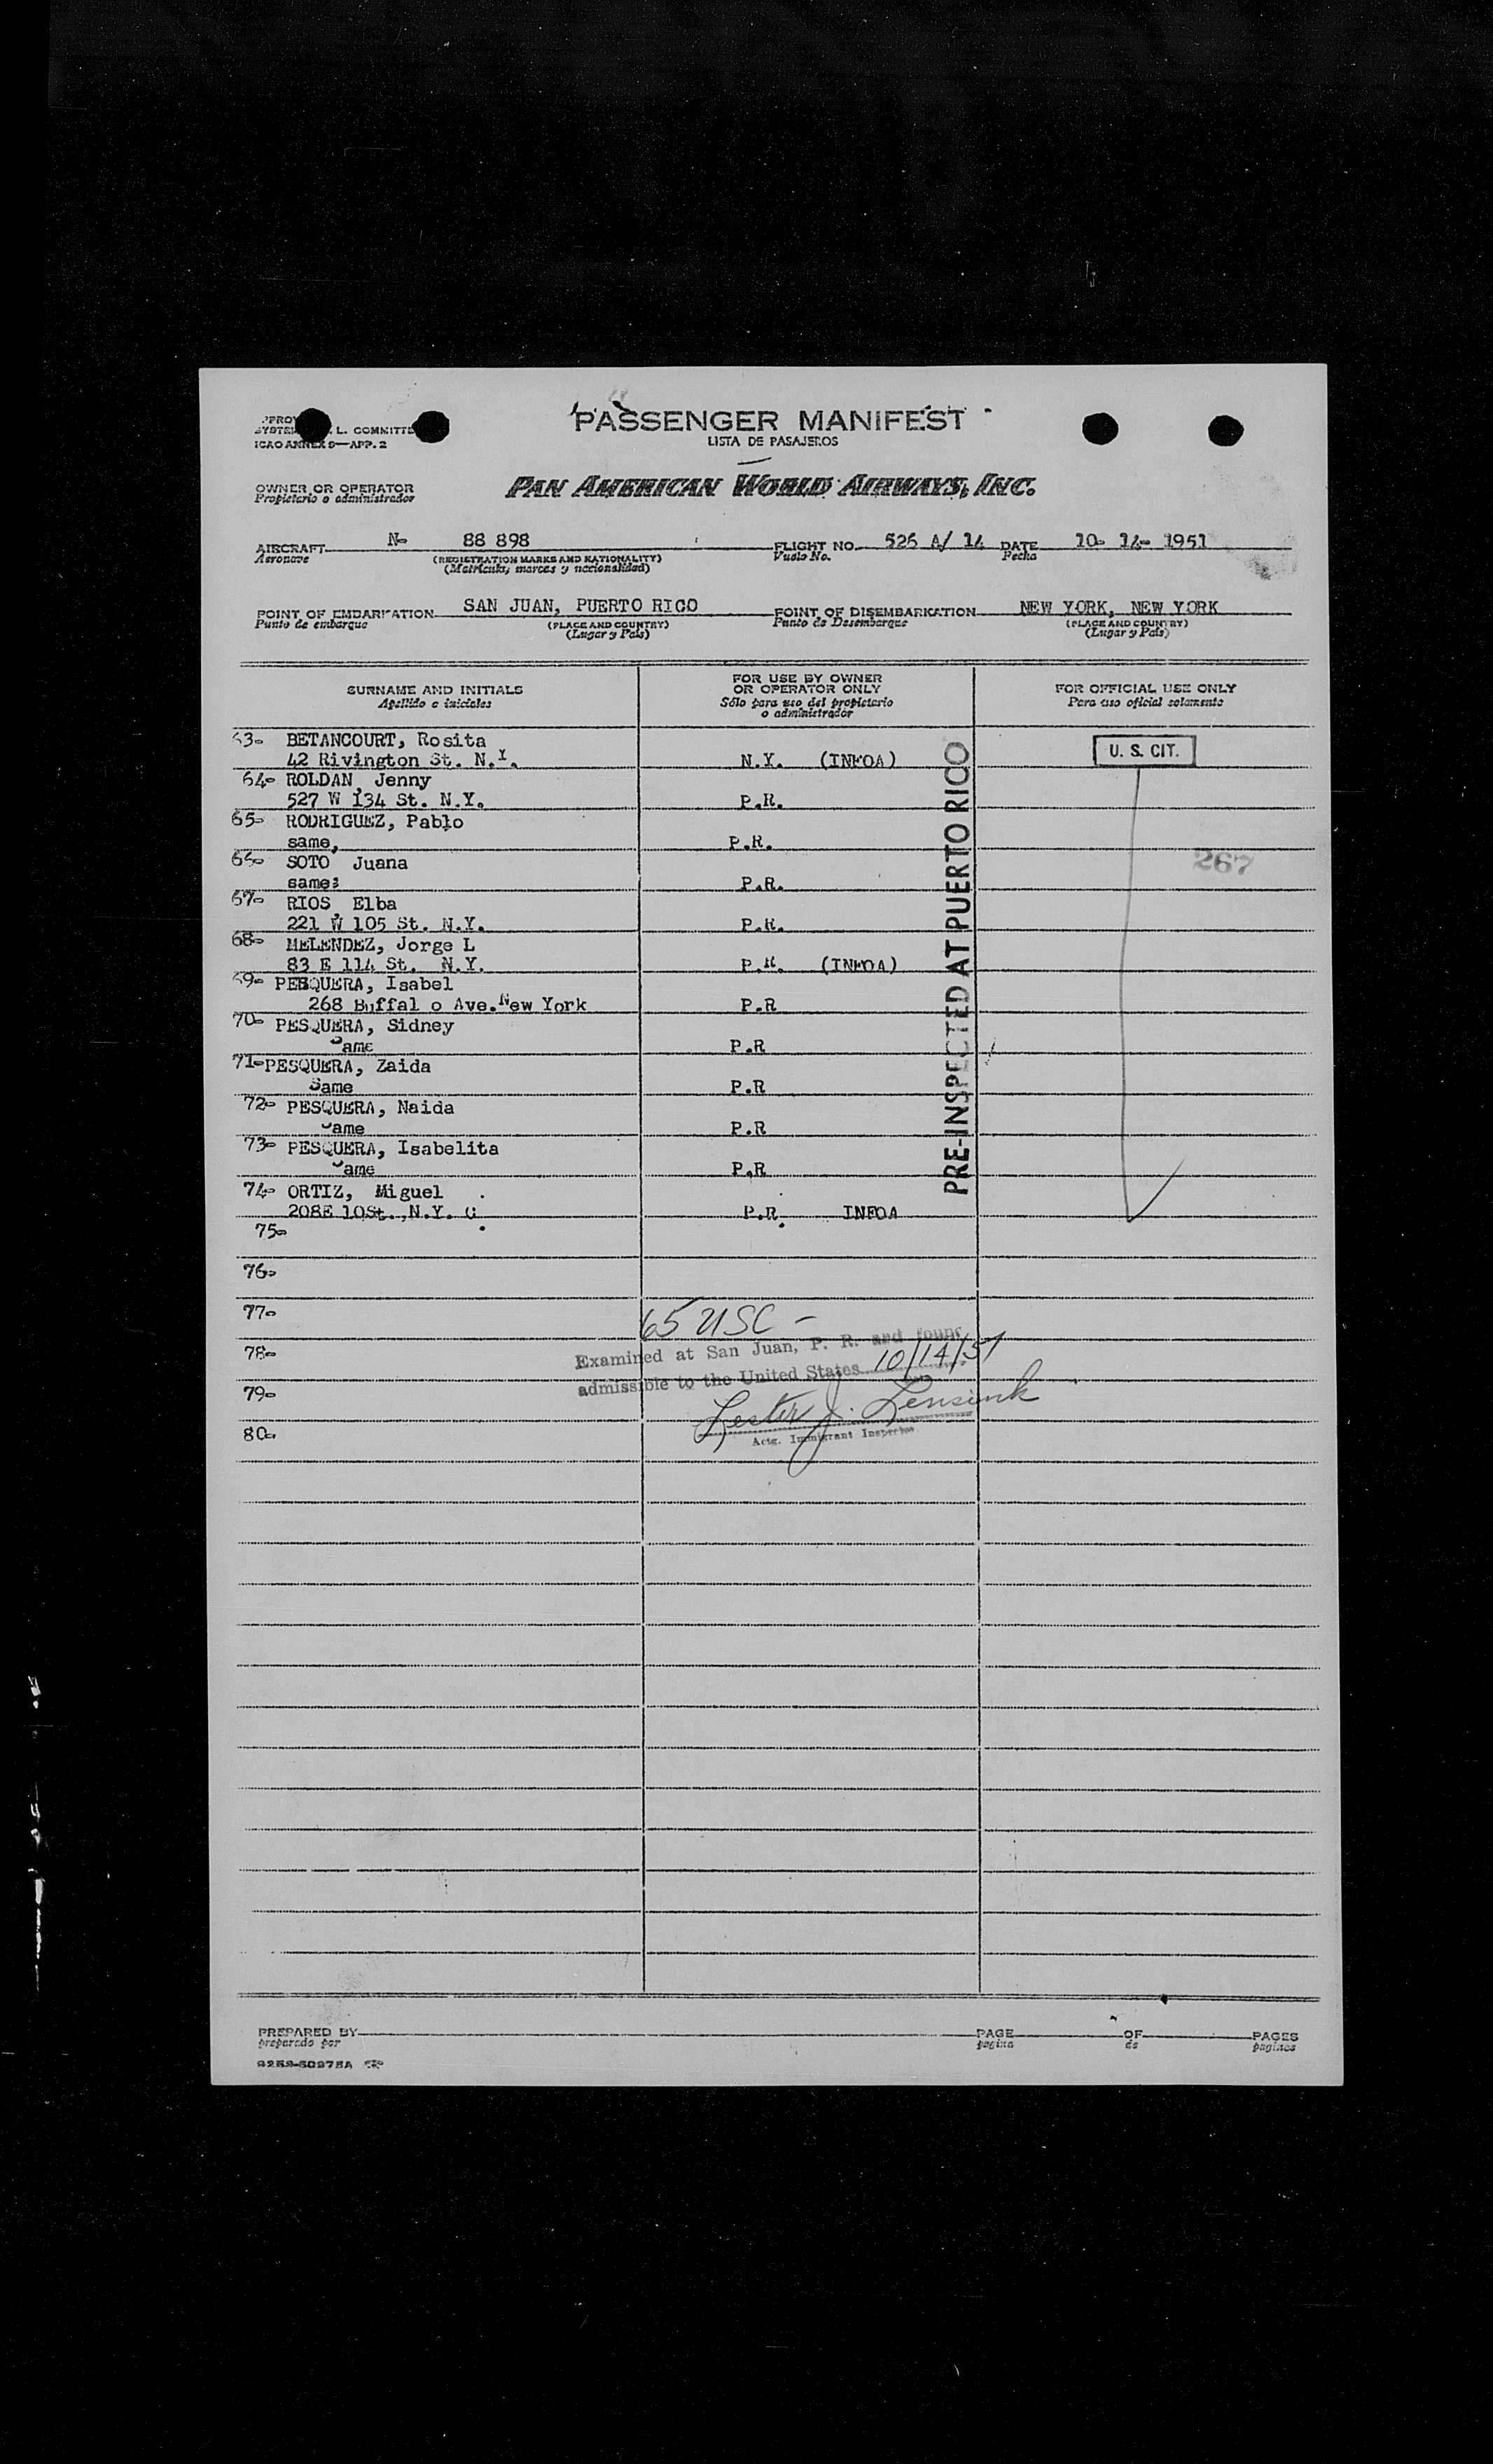 PASSENGER MANIFEST
LISTA DE PASAJEROS
L. COMMITTE
ICAO ANNEX 9—APP. 2
OWNER OR OPERATOR
Propietario o administrador
PAN AMERICAN WORLD AIRWAYS, INC.
AIRCRAFT N- 88 898 FLIGHT NO. 526 A/ 14 DATE 10- 14- 1951
Aeronave (REGISTRATION MARKS AND NATIONALITY) Vuelo No. Fecha
(Matrícula, marcas y nacionalidad)
POINT OF EMBARKATION SAN JUAN, PUERTO RICO POINT OF DISEMBARKATION NEW YORK, NEW YORK
Punto de embarque (PLACE AND COUNTRY) Punto de Desembarque (PLACE AND COUNTRY)
(Lugar y País) (Lugar y País)
SURNAME AND INITIALS
Apellido e iniciales
FOR USE BY OWNER
OR OPERATOR ONLY
Sólo para uso del propietario
o administrador
FOR OFFICIAL USE ONLY
Para uso oficial solamente
63- BETANCOURT, Rosita
42 Rivington St. N.Y. N.Y. (INFOA)
U. S. CIT.
64- ROLDAN, Jenny
527 W 134 St. N.Y. P.R.
65- RODRIGUEZ, Pablo
same, P.R.
66- SOTO Juana
same: P.R.
267
67- RIOS, Elba
221 W 105 St. N.Y. P.R.
68- MELENDEZ, Jorge L
83 E 114 St. N.Y. P.R. (INFOA)
69- PESQUERA, Isabel
268 Buffal o Ave. New York P.R
70- PESQUERA, Sidney
Same P.R
71-PESQUERA, Zaida
Same P.R
72- PESQUERA, Naida
Same P.R
73- PESQUERA, Isabelita
Same P.R
74- ORTIZ, Miguel
208E 10St., N.Y. C. P.R. INFOA
PRE-INSPECTED AT PUERTO RICO
75-
76-
77-
65 USC -
78-
Examined at San Juan, P. R. and found
admissible to the United States 10/14/51
79-
Lester J. Lensink
80-
Actg. Immigrant Inspector
PREPARED BY PAGE OF PAGES
preparado por pagina de paginas